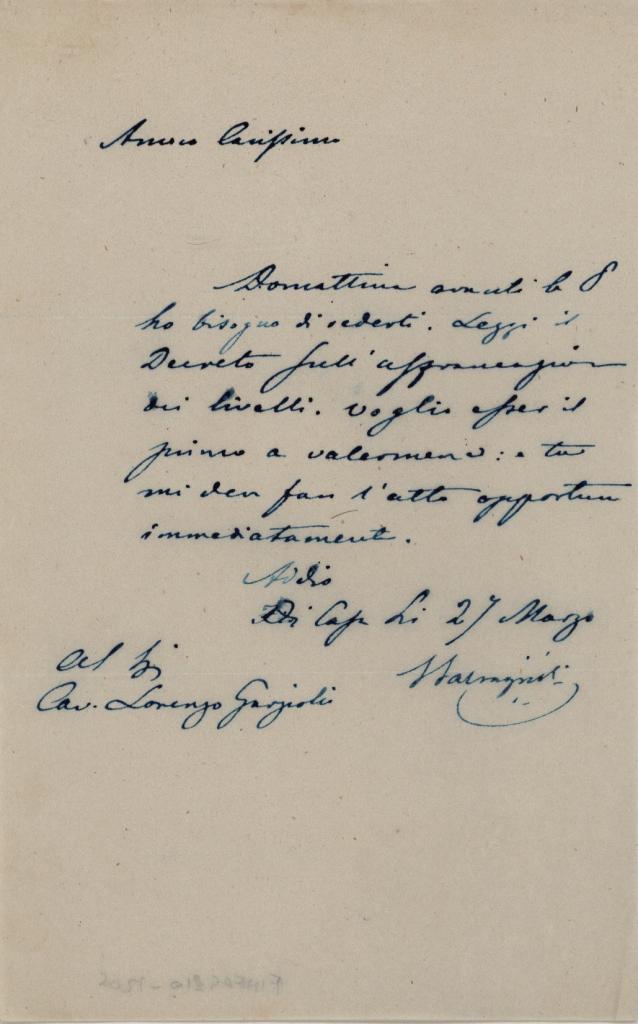 Amico Carissimo
Domattina avanti le 8
ho bisogno di vederti. Leggi il
Decreto sull' affrancazion
dei livelli. Voglio esser il
primo a valermene: e tu
mi devi fare l'atto opportuno
immediatamente.
Addio
Di Casa Li 27 Marzo
Al Sig
Cav. Lorenzo